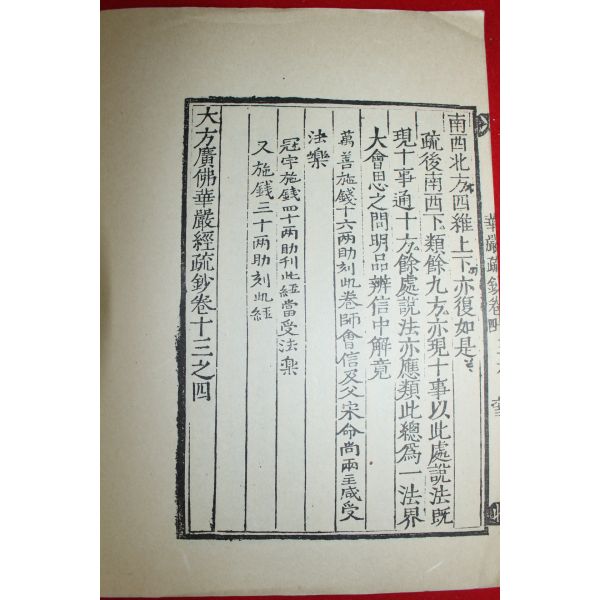 南西北方四維上下亦復如是
疏後南西下類餘九方亦現十事以此處說法既
現十事通十方餘處說法亦應類此總爲一法界
大會思之問明品辨信中解竟
萬善施錢十六兩助刻此卷師會信及父宋命尚兩主咸受
法樂
冠守施錢四十兩助刊此經當受法樂
又施錢三十兩助刻此経
大方廣佛華嚴經疏鈔卷十三之四
華嚴疏鈔卷